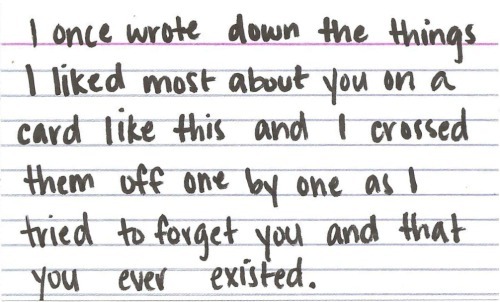 I once wrote down the things
I liked most about you on a
card like this and I crossed
them off one by one as I
tried to forget you and that
you ever existed.